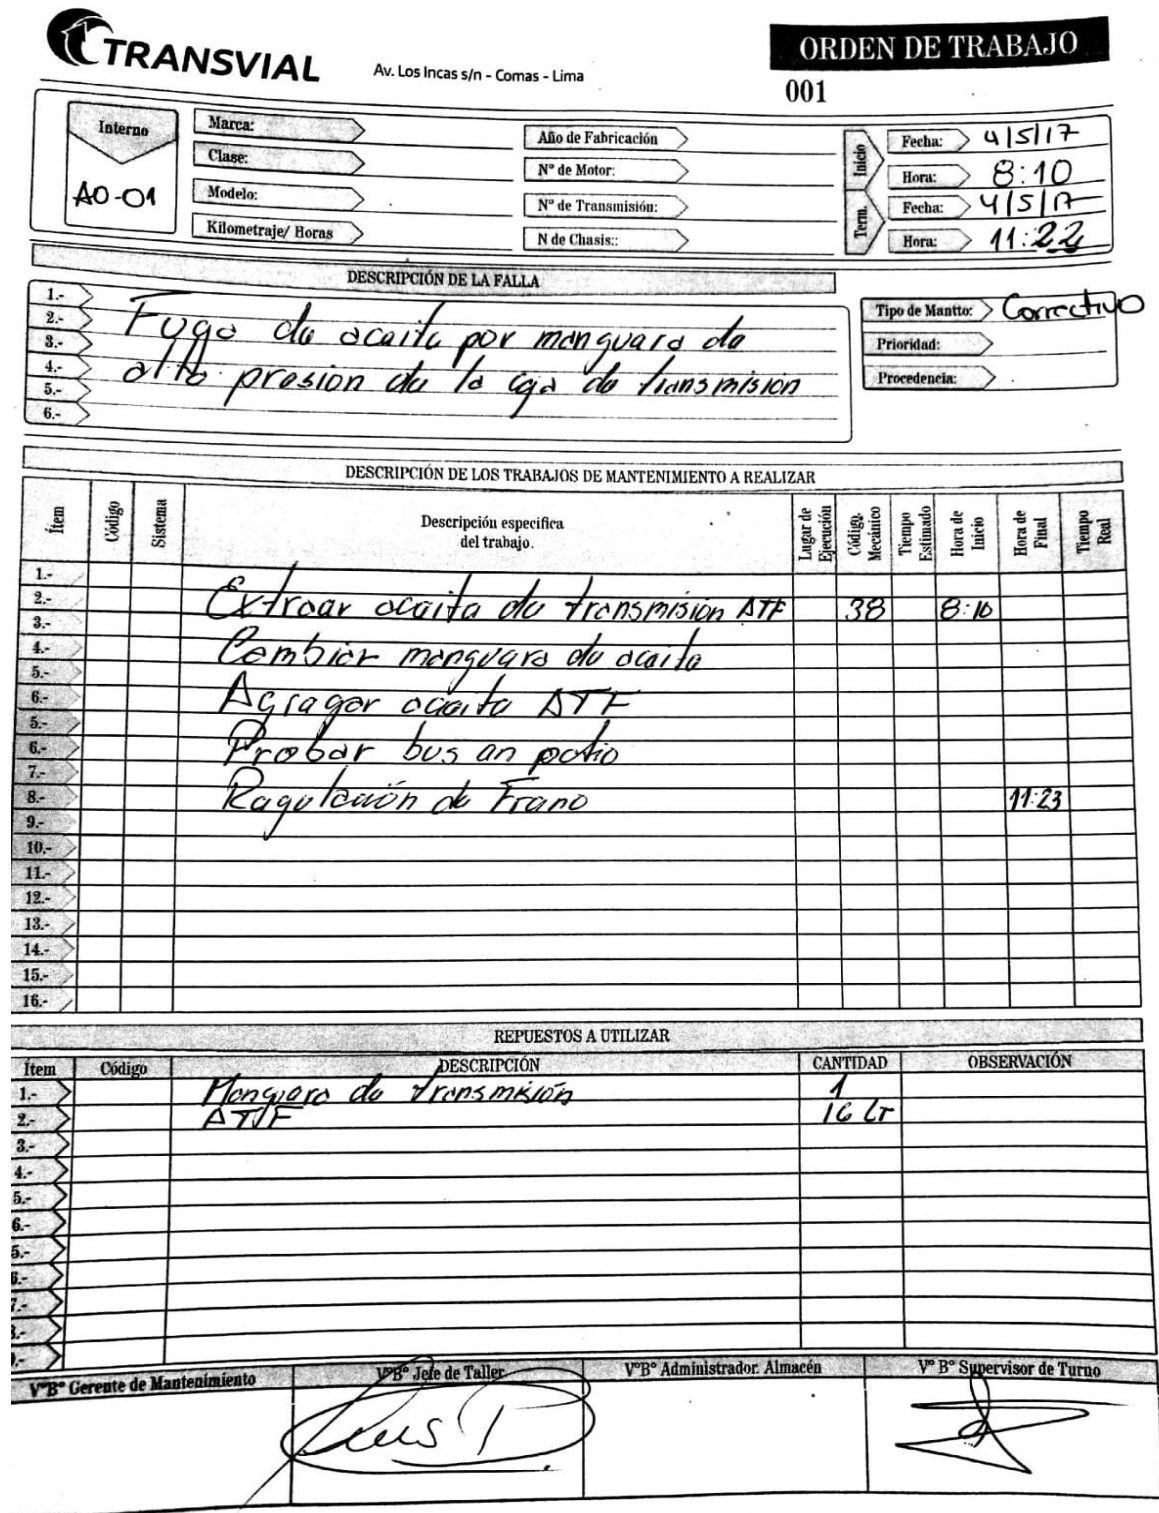 TRANSVIAL
Av. Los Incas s/n - Comas - Lima
ORDEN DE TRABAJO
001
Interno
AO-01
Marca:
Clase:
Modelo:
Kilometraje/ Horas
Año de Fabricación
N° de Motor:
N° de Transmisión:
N de Chasis::
Inicio
Fecha: 4/5/17
Hora: 8:10
Term.
Fecha: 4/5/17
Hora: 11:22
DESCRIPCIÓN DE LA FALLA
1.-
2.-
3.-
4.-
5.-
6.-
Fuga de aceite por manguera de
alta presion de la caja de transmisión
Tipo de Mantto: Correctivo
Prioridad:
Procedencia:
DESCRIPCIÓN DE LOS TRABAJOS DE MANTENIMIENTO A REALIZAR
Ítem Código Sistema Descripción especifica del trabajo. Lugar de Ejecución Códig. Mecánico Tiempo Estimado Hora de Inicio Hora de Final Tiempo Real
1.-
2.- Extraer aceite de transmisión ATF 38 8:10
3.-
4.- Cambiar manguera de aceite
5.-
6.- Agregar aceite ATF
5.-
6.- Probar bus en patio
7.-
8.- Regulación de Freno 11:23
9.-
10.-
11.-
12.-
13.-
14.-
15.-
16.-
REPUESTOS A UTILIZAR
Ítem Código DESCRIPCIÓN CANTIDAD OBSERVACIÓN
1.- Manguera de transmisión 1
2.- ATF 16 Lt
3.-
4.-
5.-
6.-
5.-
6.-
7.-
8.-
9.-
V°B° Gerente de Mantenimiento
V°B° Jefe de Taller
V°B° Administrador. Almacén
V° B° Supervisor de Turno